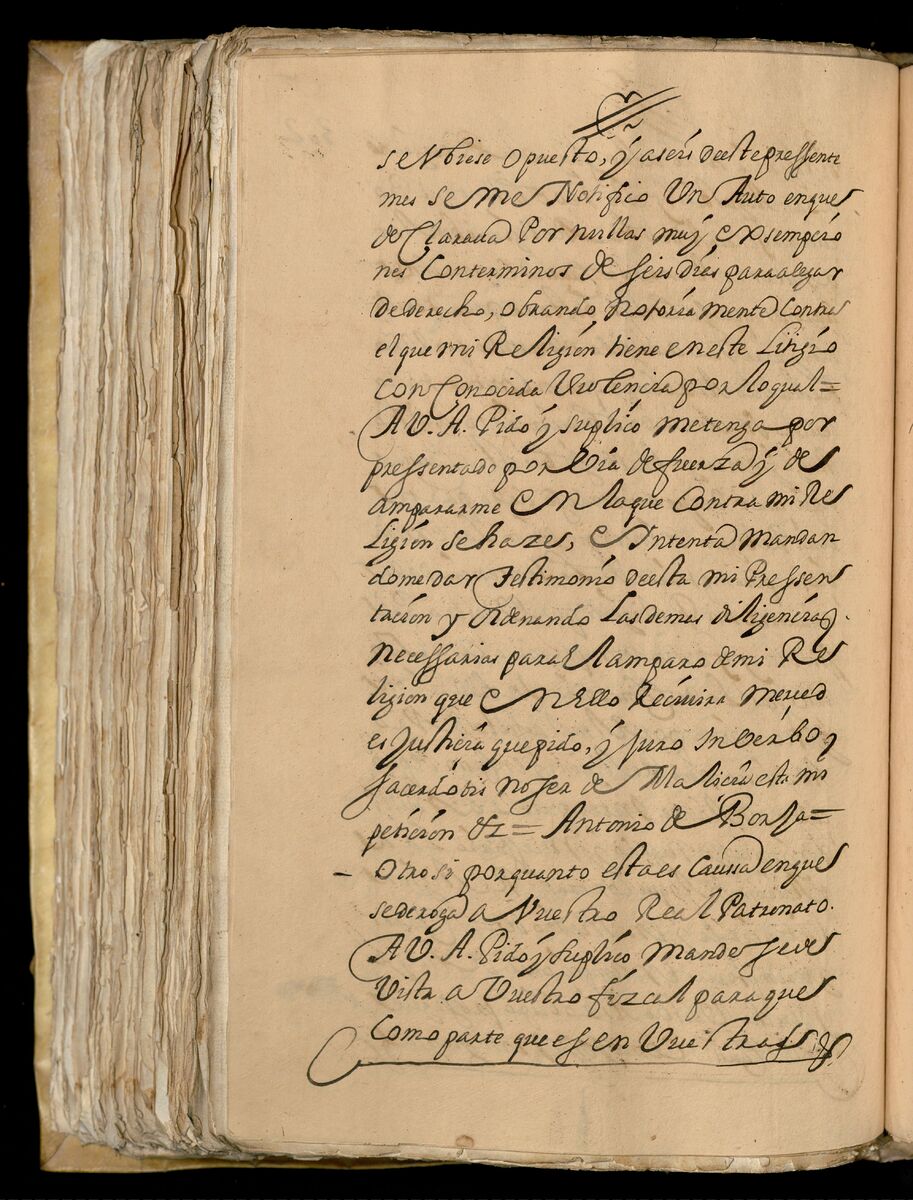 se Vbiese opuesto, ý a seis deeste pressente
mes se me Notifico Un Auto enque
de Claraua Por nullas muy Exsempcio
nes Conterminos de seis dias paraalegar
de derecho, obrando notoria mente Contra
el que mi Religión tiene en este Litigio
con Conocida Violencia por loqual=
A V. A. Pido ý suplico metenga por
pressentado por Via de fuerza ý de
ampararme En laque Contra mi Re
Ligión se haze, E Intenta Mandan
dome dar Testimonio deesta mi Pressen
tación y Ordenando Lasdemas diligencias.
Necessarias para el amparo demi Re
ligion que En Ello Reciuira Merced
es Justicia quepido, ý juro In Verbo
sacerdotis noser de Malicia esta mi
petición &z= Antonio de Borja=
- Otro si porquanto esta es Caussa enque
sederoga a Vuestro Real Patronato.
A V. A. Pido ý suplico Mande se de
Vista a Vuestro fizcal para que
Como parte que es en Vuestras